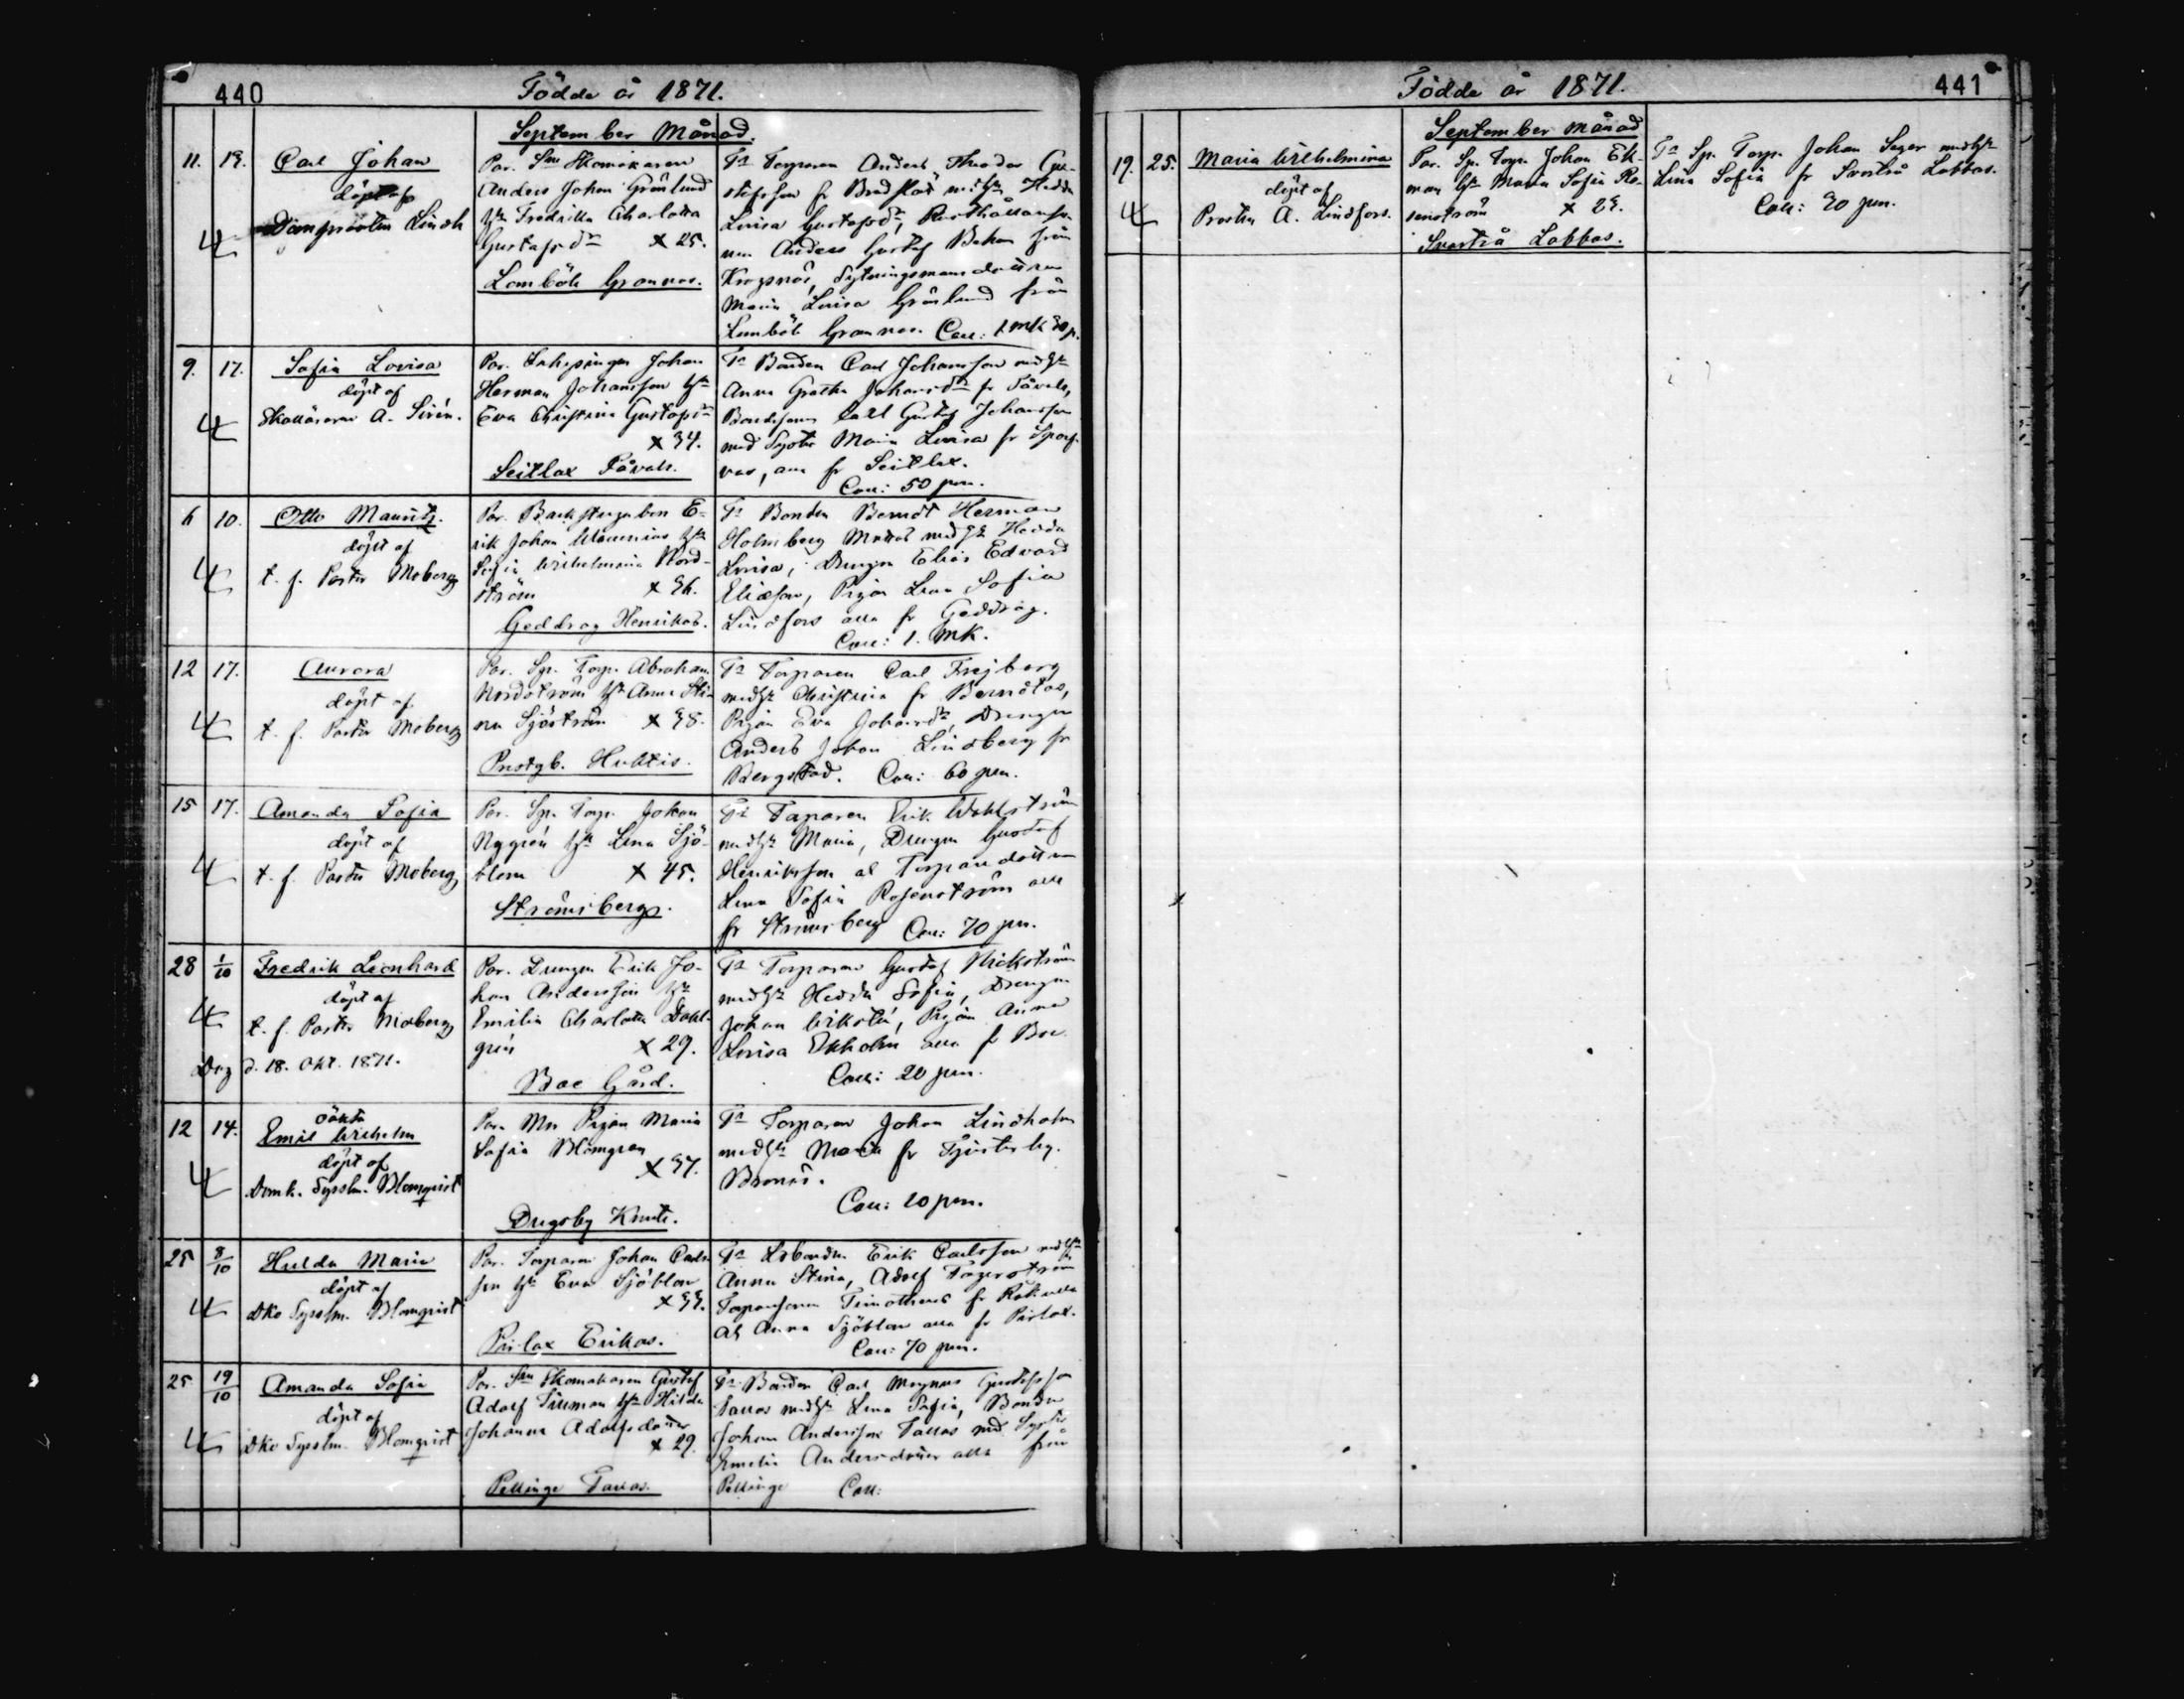 440
Födde år 1871.
September Månad.
11. 13. Carl Johan
döpt af
Domprosten Lindh
Par. Skomakaren
Anders Johan Grönlund
hu Fredrika Charlotta
Gustafsdr x 25.
Lomböle Grannas.
Torparen Anders Theodor Gu-
stafsson fr med hu Hedda
Lovisa Gustafsdr,
Anders Gustaf Bekan från
Kropsnäs, Sytningsmansdottren
Maria Lovisa Grönlund från
Lomböle Grannas. Coll: 1 mk 30 p.
9. 17. Sofia Lovisa
döpt af
A. Sirén.
Par. Johan
Herman Johansson hu
Eva Christina Gustafsdr
x 34.
Seitlax Påvals.
Bonden Carl Johansson med hu
Anna Greta Johansdr fr Påvals,
Bondesonen Carl Gustaf Johansson
med Syster Maria Lovisa fr
alla fr Seitlax.
Coll: 50 pen.
6 10. Otto Mauritz.
döpt af
t. f. Pastor Moberg
Par. Backstugubon E-
rik Johan hu
Sofia Wilhelmina Nord-
ström x 36.
Geddrag Henrikas.
Bonden Berndt Herman
Holmberg med hu Hedda
Lovisa, Drengen Elias Edvard
Eliasson, Pigan Lena Sofia
Lindfors alla fr Geddrag.
Coll: 1. mk.
12 17. Aurora
döpt af
t. f. Pastor Moberg
Par. Sp. Torp. Abraham
Nordström hu Anna Sti-
na Sjöström x 38.
Prestgb. Huktis.
Torparen Carl Frejberg
med hu Christina fr Berndtas,
Pigan Eva Johansdr, Drengen
Anders Johan Lindberg fr
Bergstad. Coll: 60 pen.
15 17. Amanda Sofia
döpt af
t. f. Pastor Moberg
Par. Sp. Torp. Johan
Nygrén hu Lena Sjö-
blom x 45.
Strömsberg.
Torparen Erik Wahlström
med hu Maria, Drengen Gustaf
Henriksson ab Torparedottren
Lena Sofia Rosenström alla
fr Strömsberg Coll: 70 pen.
28 1/10 Fredrik Leonhard
döpt af
t. f. Pastor Moberg
Dog d. 18. Okt. 1871.
Par. Drengen Erik Jo-
han Andersson hu
Emilia Charlotta Dahl-
grén x 29.
Boe Gård.
Torparen Gustaf Wickström
med hu Hedda Sofia, Drengen
Johan Wikstén, Pigan Anna
Lovisa Ekholm alla fr Boe
Coll: 20 pen.
12 14. oäkta
Emil Wilhelm
döpt af
Domk. Sysslm. Blomqvist
Par. Mn Pigan Maria
Sofia Blomgren
x 37.
Drägsby Knuts.
Torparen Johan Lindholm
med hu Maria fr Tjusterby.
Brenäs.
Coll: 20 pen.
25 8/10 Hulda Maria
döpt af
Dko Sysslm. Blomqvist
Par. Torparen Johan Carls-
son hu Eva Sjöblom
x 33.
Pirlax Erikas.
Lsbonden Erik Carlsson med hu
Anna Stina, Adolf Fagerström
Torparsonen Timotheus fr
ab Anna Sjöblom alla fr Pirlax.
Coll: 70 pen.
25 19/10 Amanda Sofia
döpt af
Dko Sysslm. Blomqvist
Par. Skomakaren Gustaf
Adolf Tillman hu Hilda
Johanna Adolfsdotter
x 29.
Pellinge Tallas.
Bonden Carl Magnus Gustafsson
Tallas med hu Lena Sofia, Bonden
Johan Andersson Tallas med Syster
Emelie Andersdotter alla från
Pellinge Coll:
Födde år 1871.
441
September Månad
19. 25. Maria Wilhelmina
döpt af
Prosten A. Lindfors.
Par. Sp. Torp. Johan Ek-
man hu Maria Sofia Ro-
senström x 23.
Svartså Labbas.
Sp. Torp. Johan Seger med hu
Lina Sofia fr Svartså Labbas.
Coll: 30 pen.